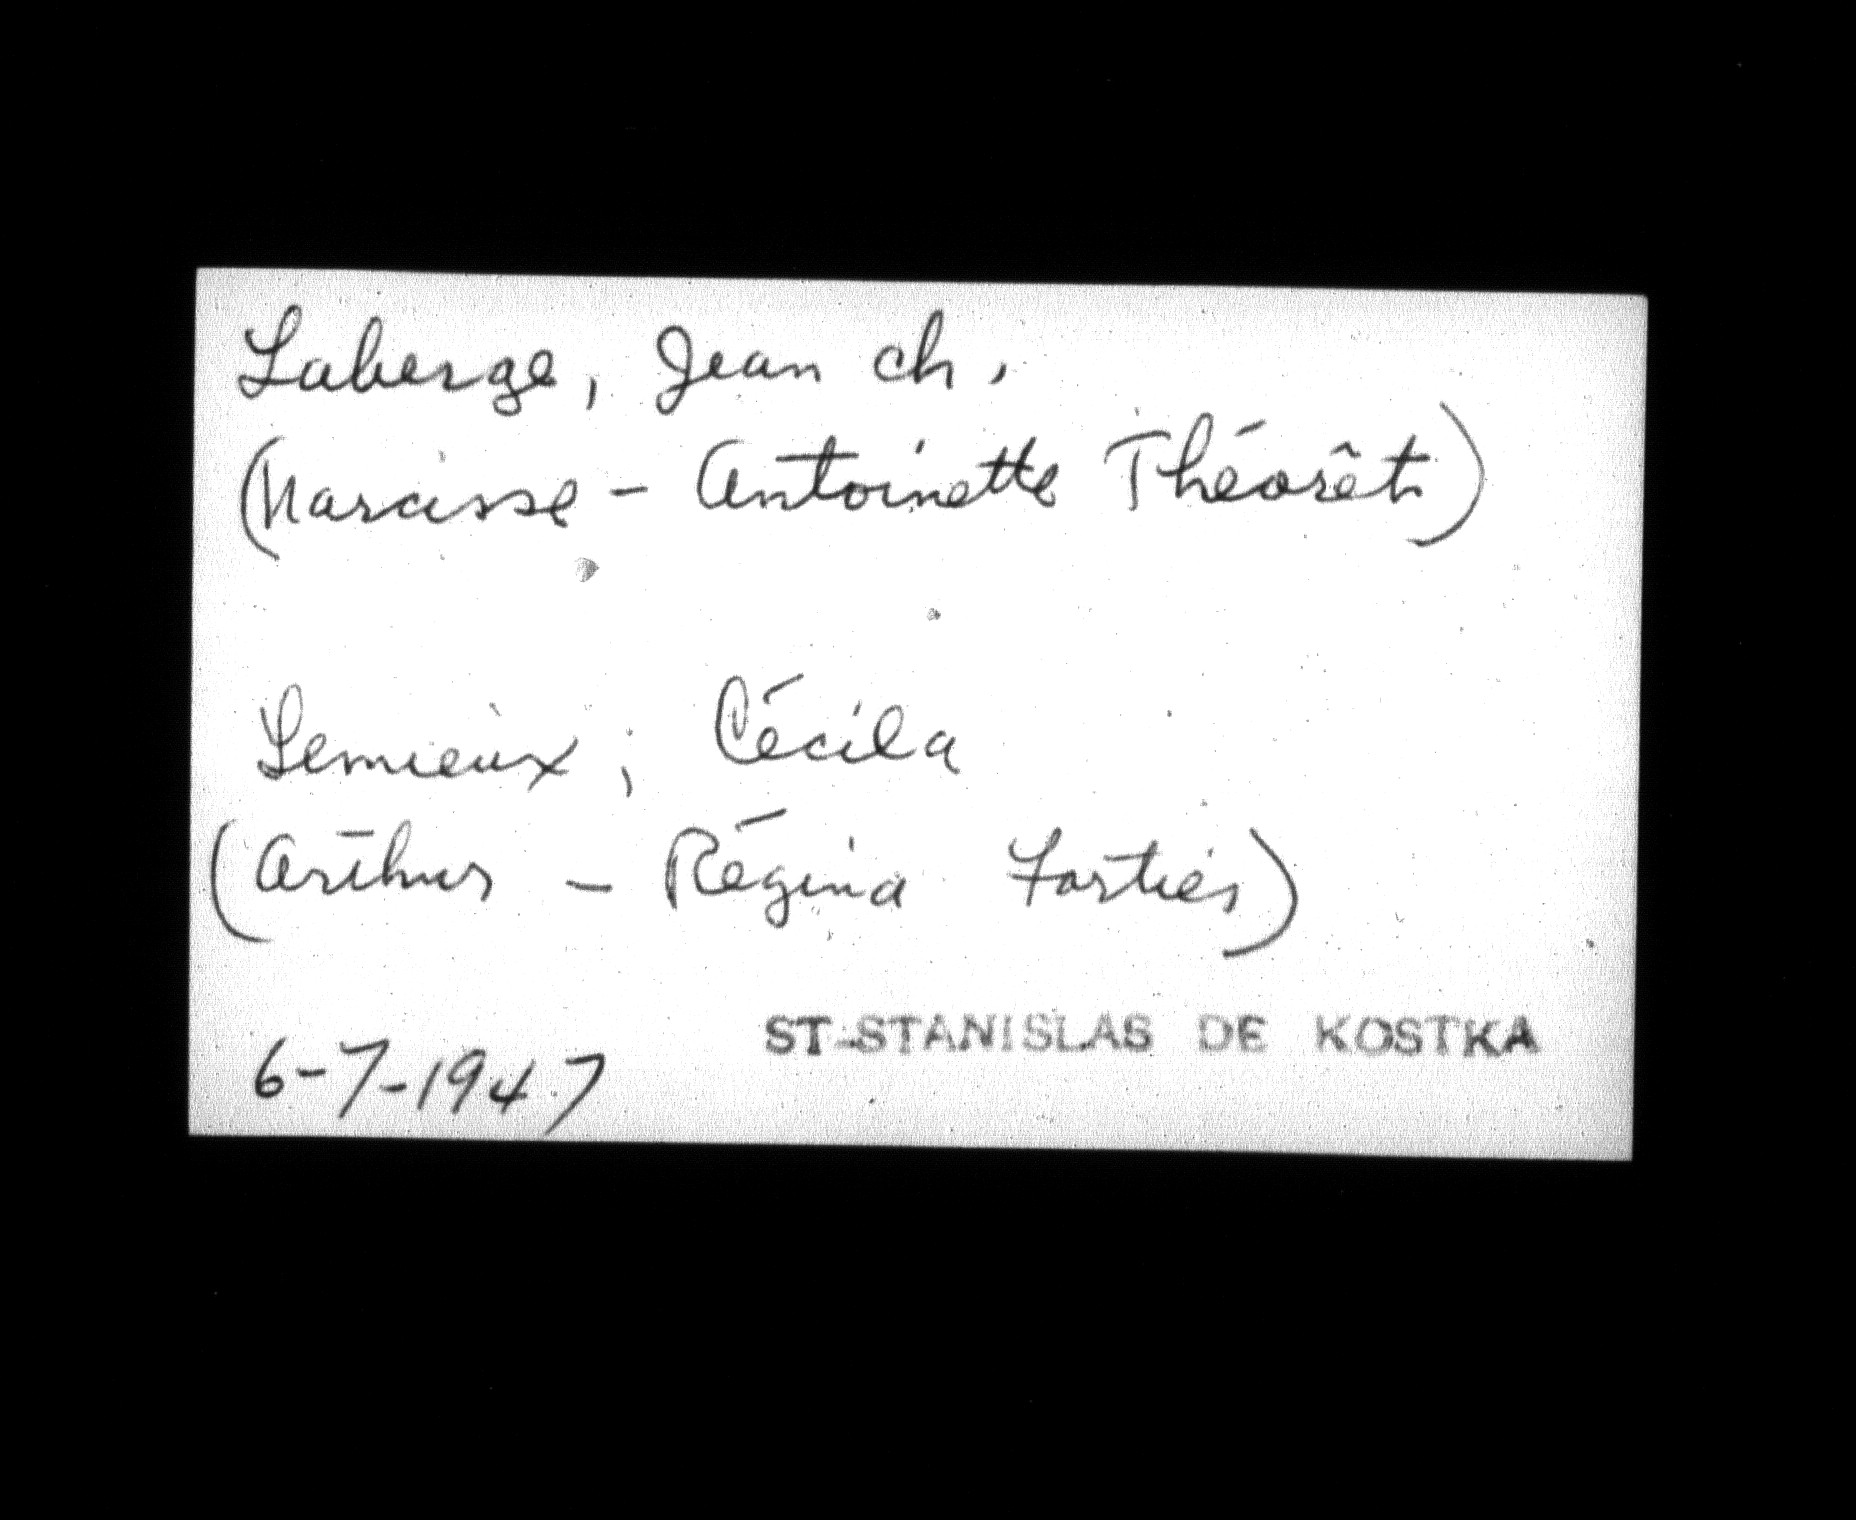 Laberge, Jean ch.
(Narcisse - Antoinette Théorêt)
Lemieux, Cécila
(Arthur - Régina Fortier)
ST-STANISLAS DE KOSTKA
6-7-1947